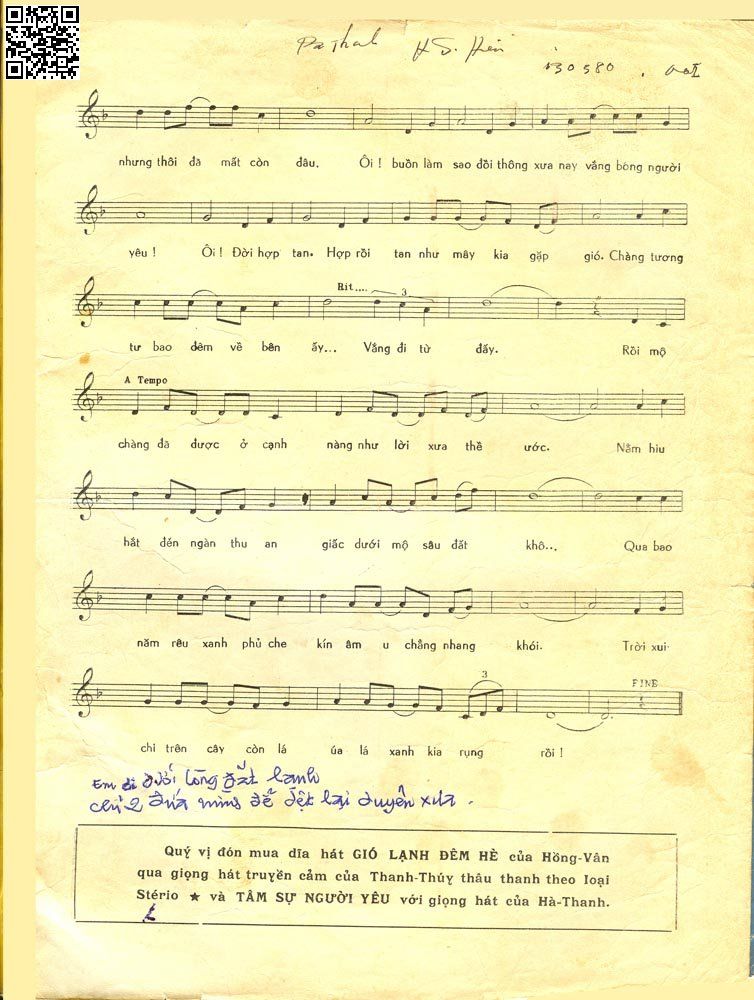 Pa Thanh H S. Hiền
nhưng thôi đã mất còn đâu. Ôi ! buồn làm sao đồi thông xưa nay vắng bóng người
yêu ! Ôi ! Đời hợp tan. Hợp rồi tan như mây kia gặp gió. Chàng tương
Rit.... 3
tư bao đêm về bên ấy... Vắng đi từ đấy. Rồi mộ
A Tempo
chàng đã được ở cạnh nàng như lời xưa thề ước. Nằm hiu
hắt đến ngàn thu an giấc dưới mộ sâu đất khô... Qua bao
năm rêu xanh phủ che kín âm u chẳng nhang khói. Trời xui
3 FINE
chi trên cây còn lá úa lá xanh kia rụng rồi !
Em đi dưới lòng đất lạnh
chứ 2 đứa mình để dệt lại duyên xưa.
Quý vị đón mua dĩa hát GIÓ LẠNH ĐÊM HÈ của Hồng-Vân
qua giọng hát truyền cảm của Thanh-Thúy thâu thanh theo loại
Stério ★ và TÂM SỰ NGƯỜI YÊU với giọng hát của Hà-Thanh.